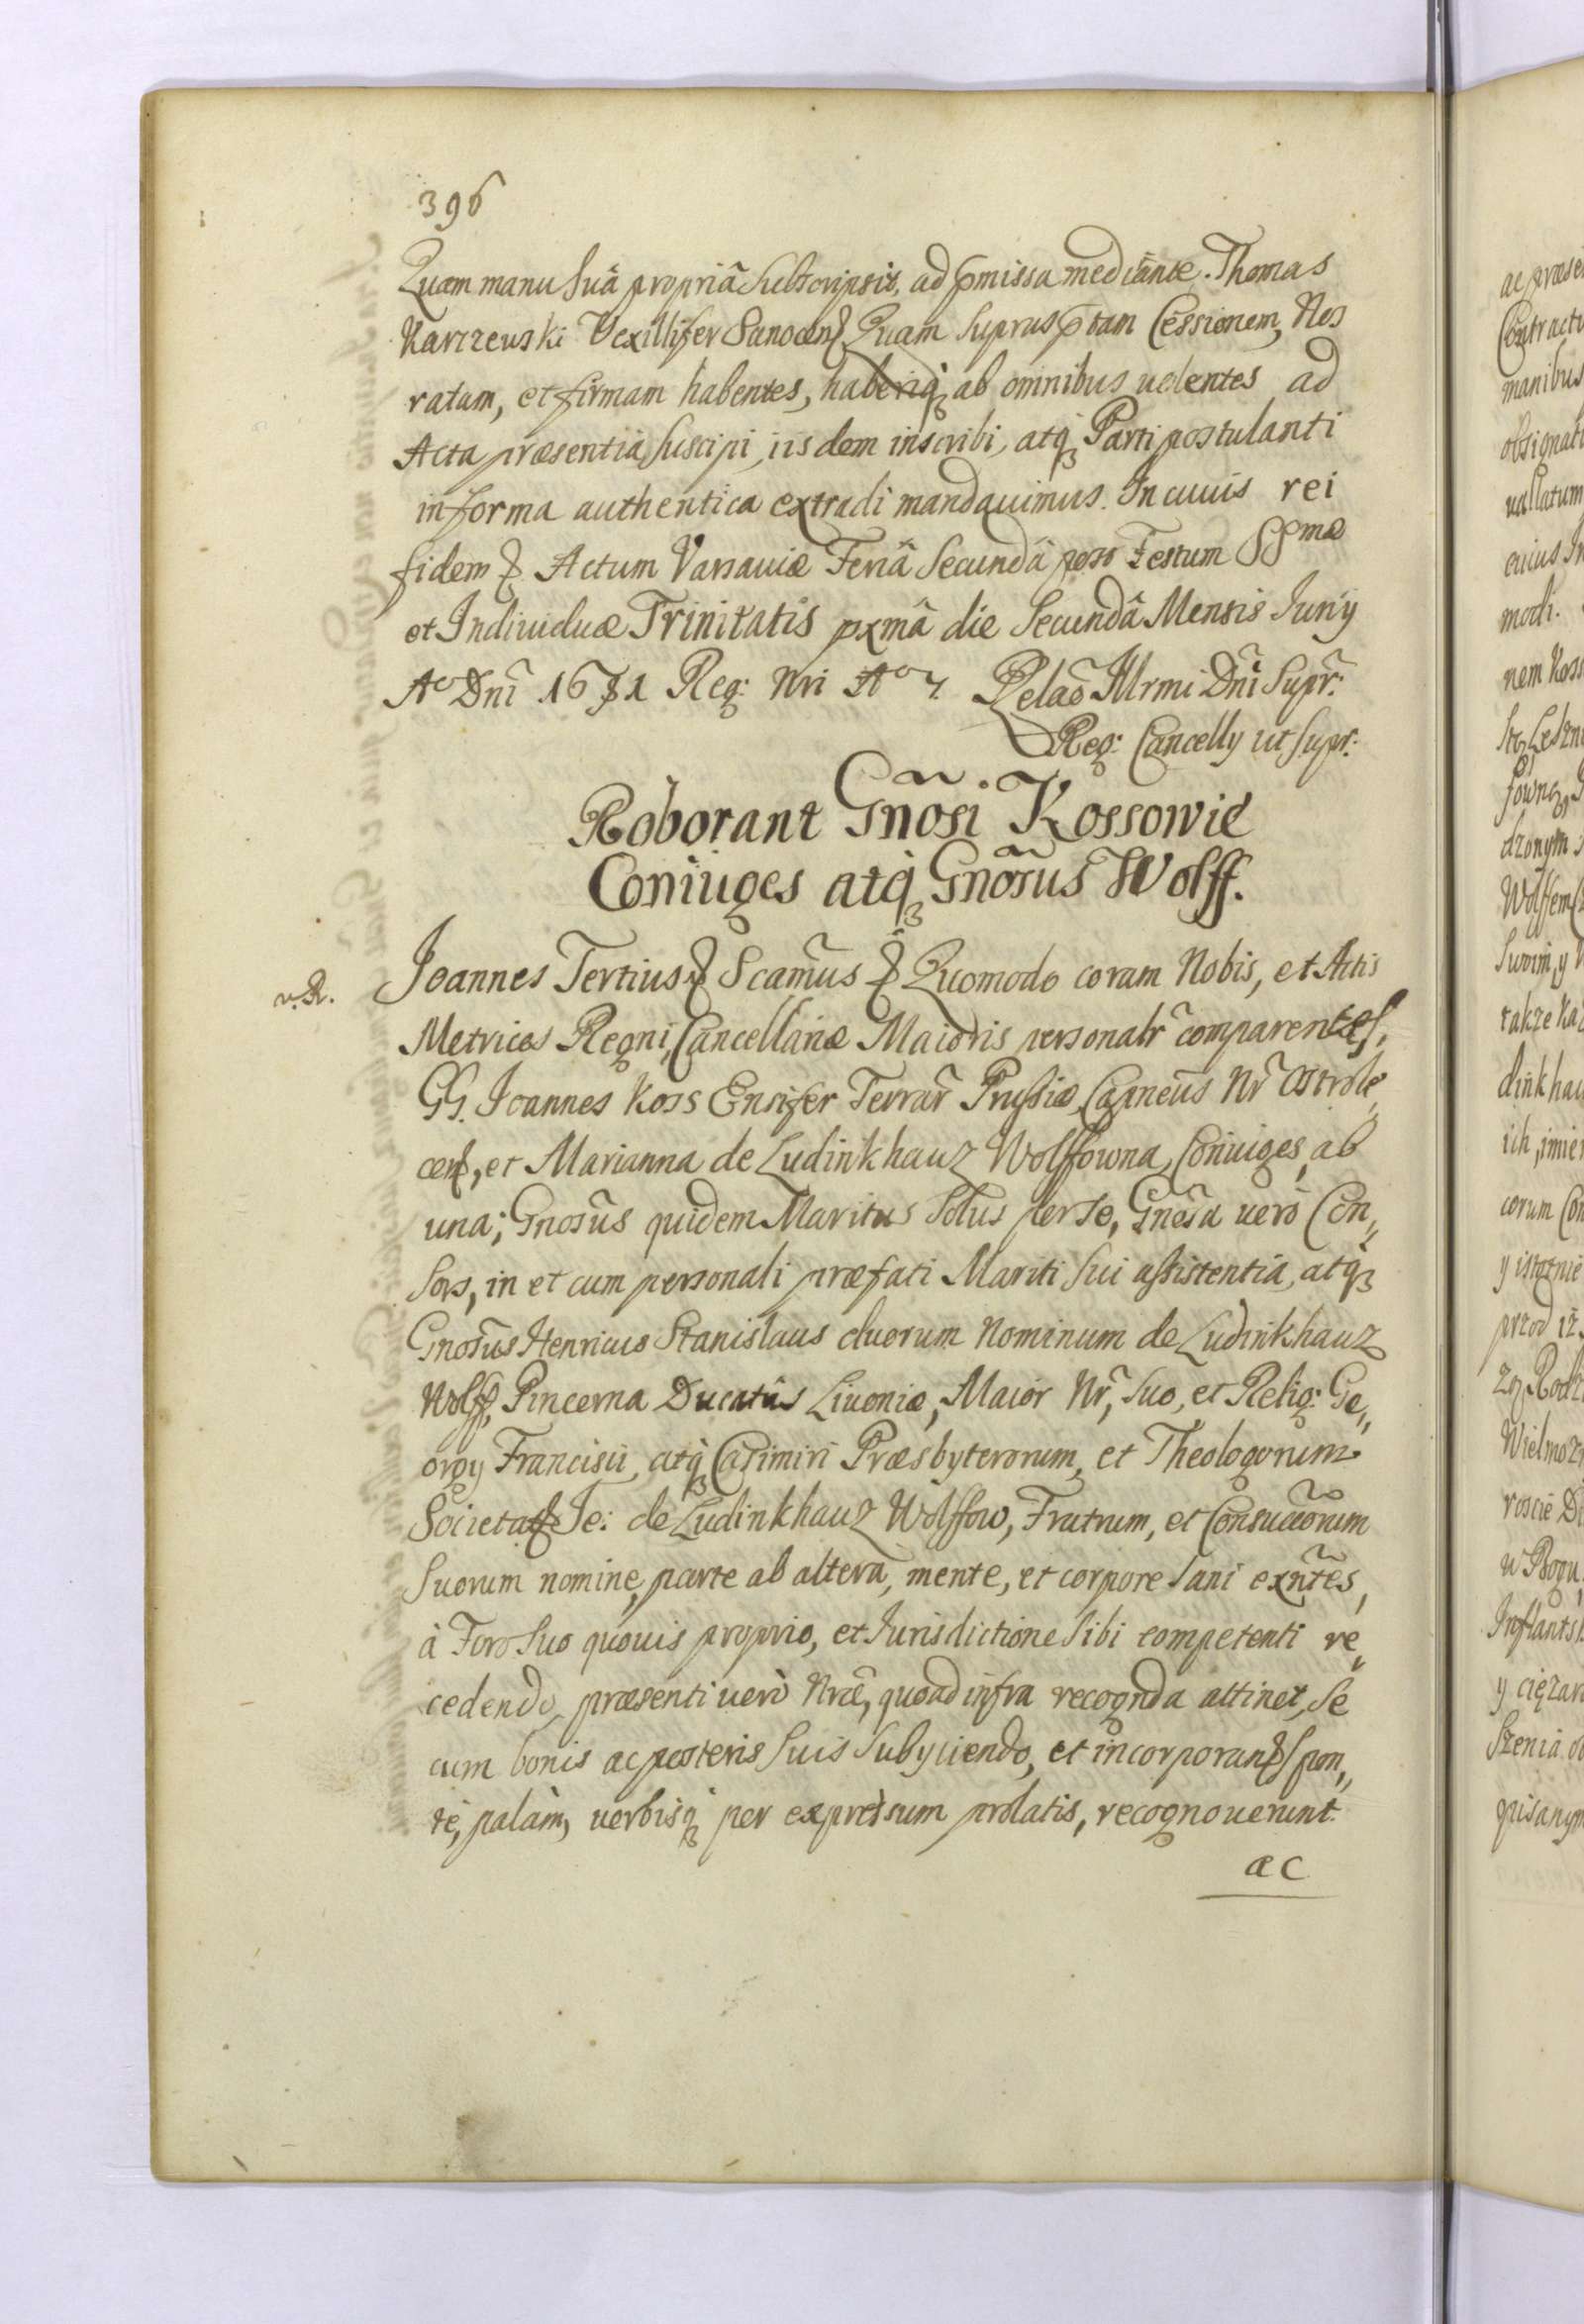 396
Quam manu suâ propriâ subscripsit, ad p̃missa mediante. Thomas
Karczewski Vexillifer Sanocenſ Quam suprasc̃ptam Cessionem, Nos
ratam, et firmam habentes, haberiq̃ ab omnibus uolentes ad
Acta præsentia suscipi, iisdem inscribi, atq̃ Parti postulanti
in forma authentica extradi mandauimus. In cuius rei
fidem & Actum Varsauiæ Feriâ Secundâ post Festum SSmæ
et Indiuiduæ Trinitatis pxmâ die Secundâ Mensis Junij
Ao Dni 1681 Reg: Nri Ao 7. Relao Illrmi Dni Supr:
Reg: Cancellij ut supr:
Roborant Gñosi Kossowie
Coniuges atq̃ Gnõsus Wolff.
v. R. Joannes Tertius & Scamus & Quomodo coram Nobis, et Actis
Metrices Regni, Cancellariæ Maioris personalr comparentes,
GG. Joannes Koss Ensifer Terrar̃ Prussiæ, Capneus Nr̃ Ostrole„
cenſ, et Marianna de Ludinkhauz Wolffowna, Coniuges, ab
una; Gnosus quidem Maritus solus per se, Gnosa uerò Con„
sors, in et cum personali præfati Mariti sui assistentia, atq̃
Gnosus Henricus Stanislaus duorum Nominum de Ludinkhauz
Wolff, Pincerna Ducatûs Liuoniæ, Maior Nr̃, suo, et Relig: Ge„
orgij Francisci, atq̃ Casimiri Præsbyterorum, et Theologorum
Societatis Je: de Ludinkhauz Wolffow, Fratrum, et Consuccorum
suorum nomine, parte ab altera, mente, et corpore sani exñtes,
à Foro suo quouis proprio, et Jurisdictione sibi competenti re„
cedendo, præsenti uerò Nræ, quoad infra recognda attinet, se
cum bonis ac posteris suis subijciendo, et incorporanđ spon„
tè, palàm, uerbisq̃ per expressum prolatis, recognouerunt
ac